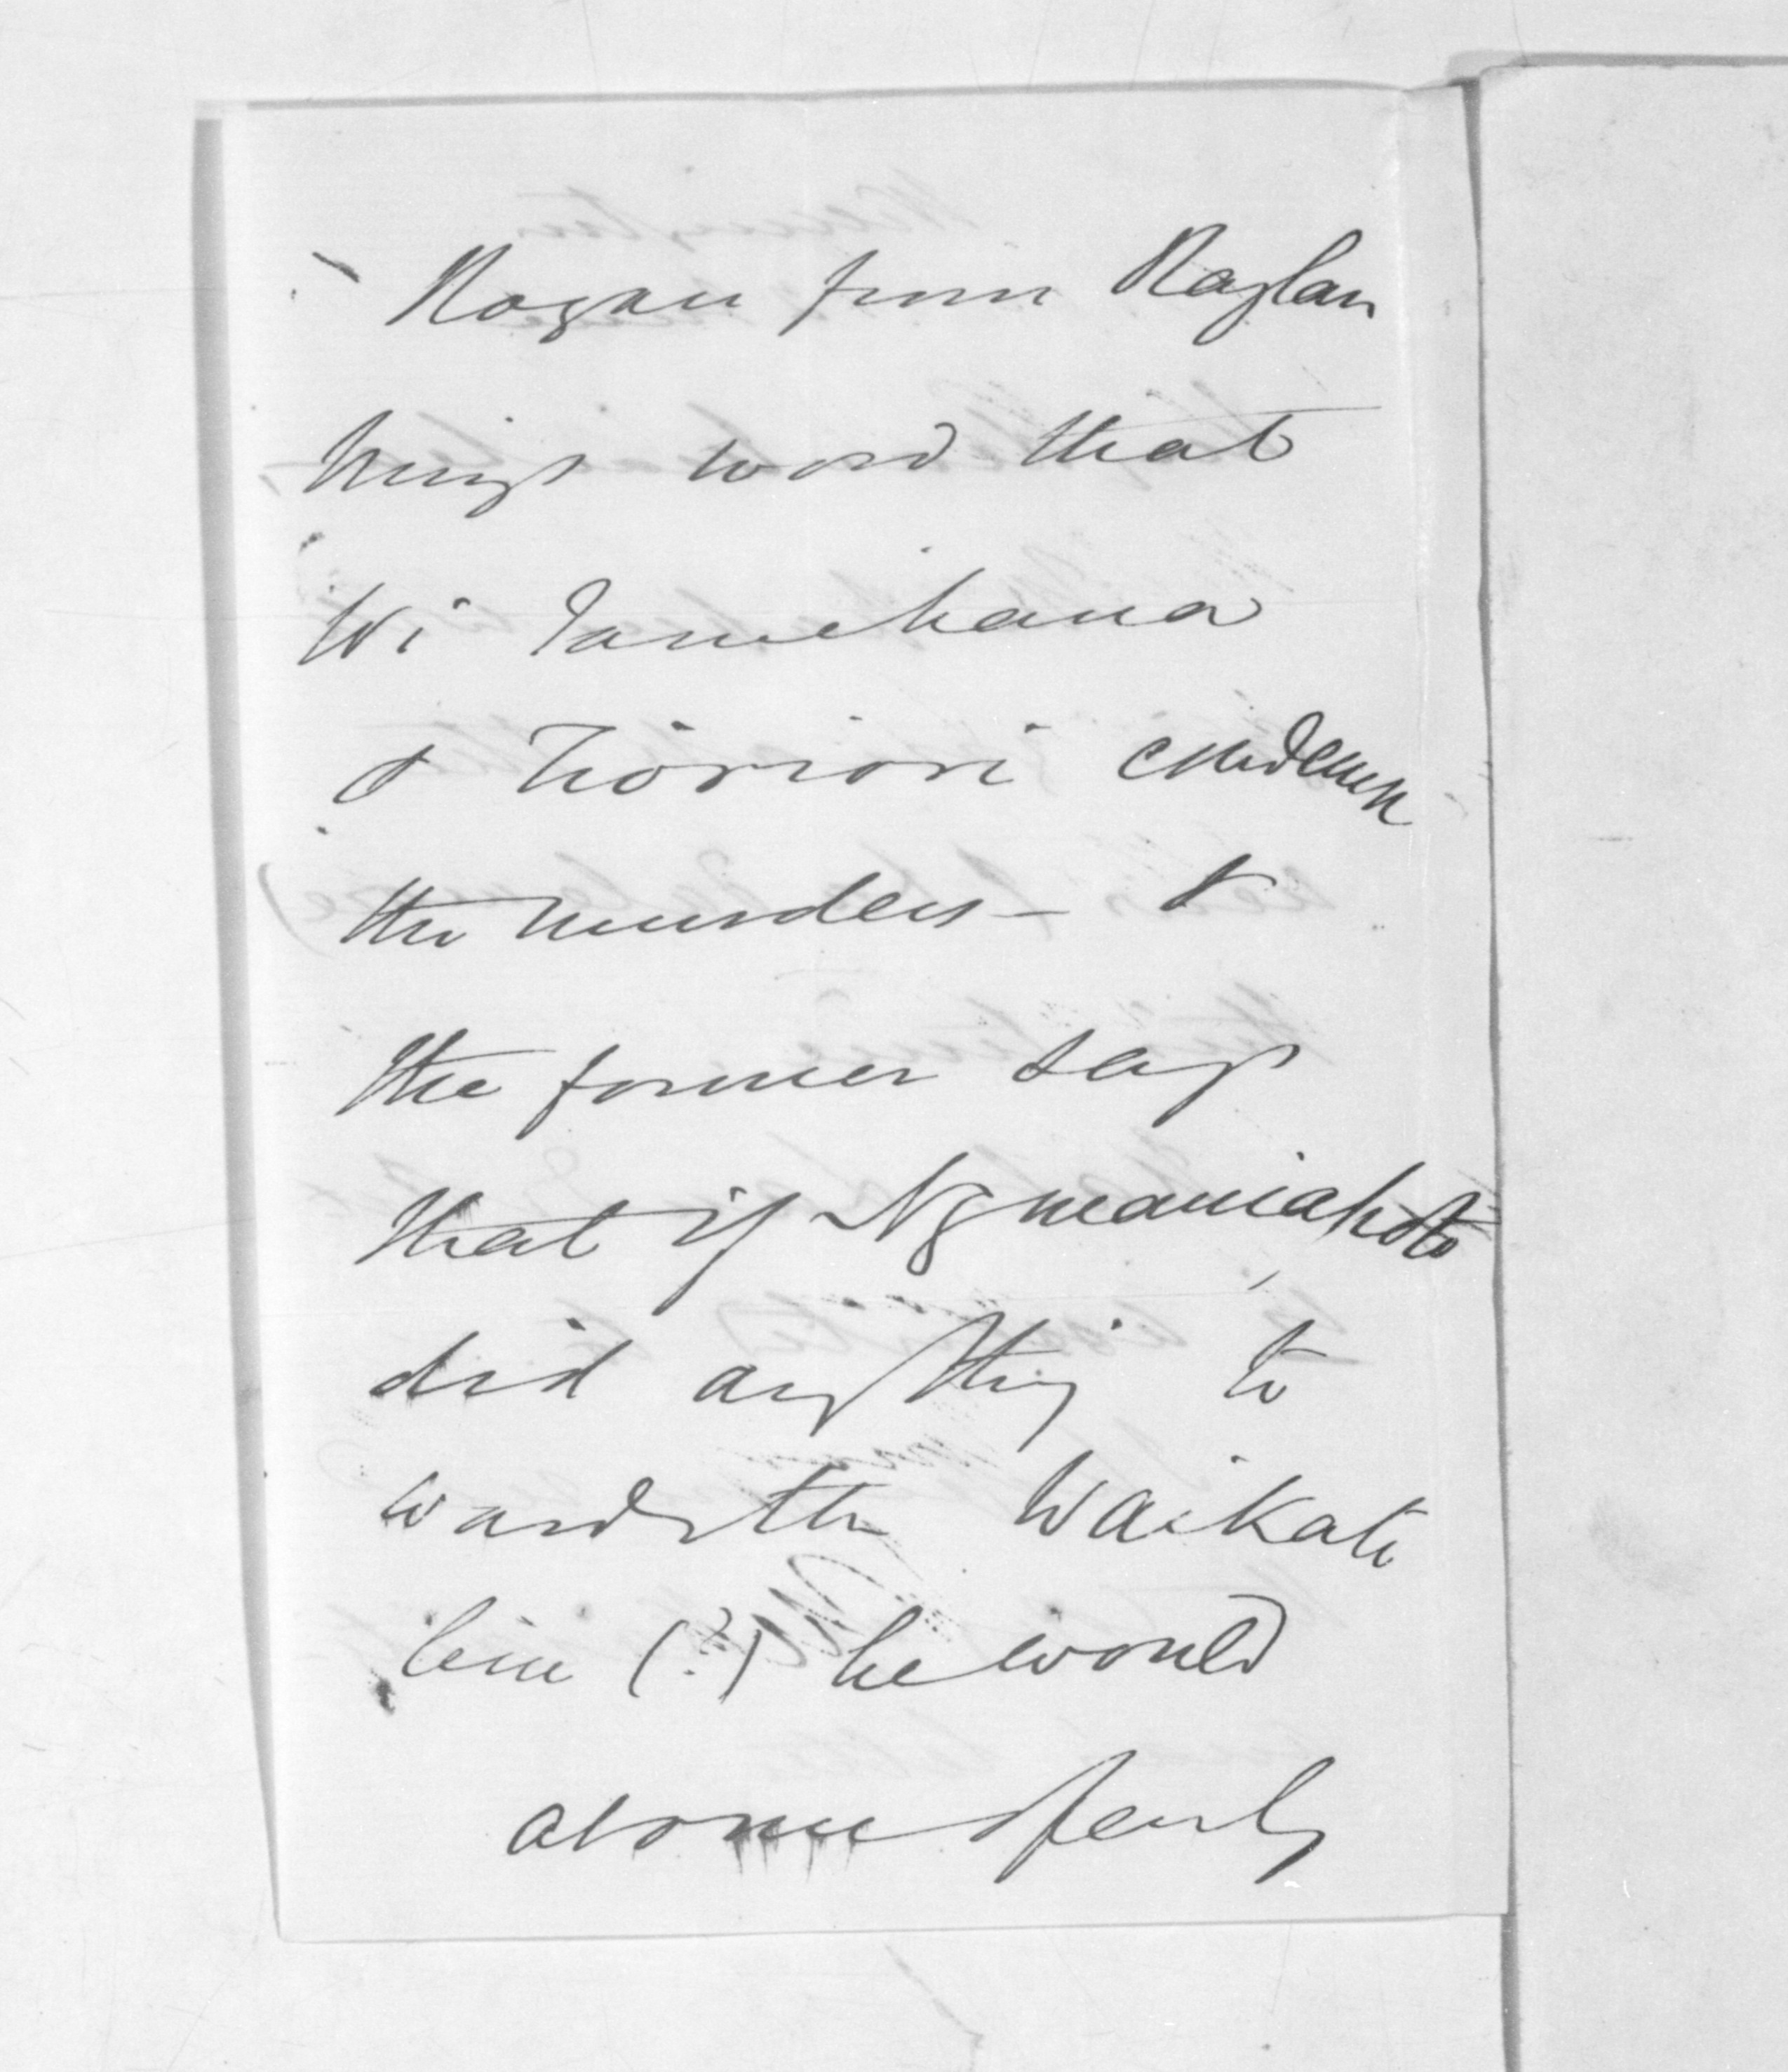 Rogan from Raglan
brings word that
Wi Tamehana
& Tioriori condemn
the murders - &
the former says
that if Ngmaniapoto
did anything to
wards the Waikato
line (?) he would